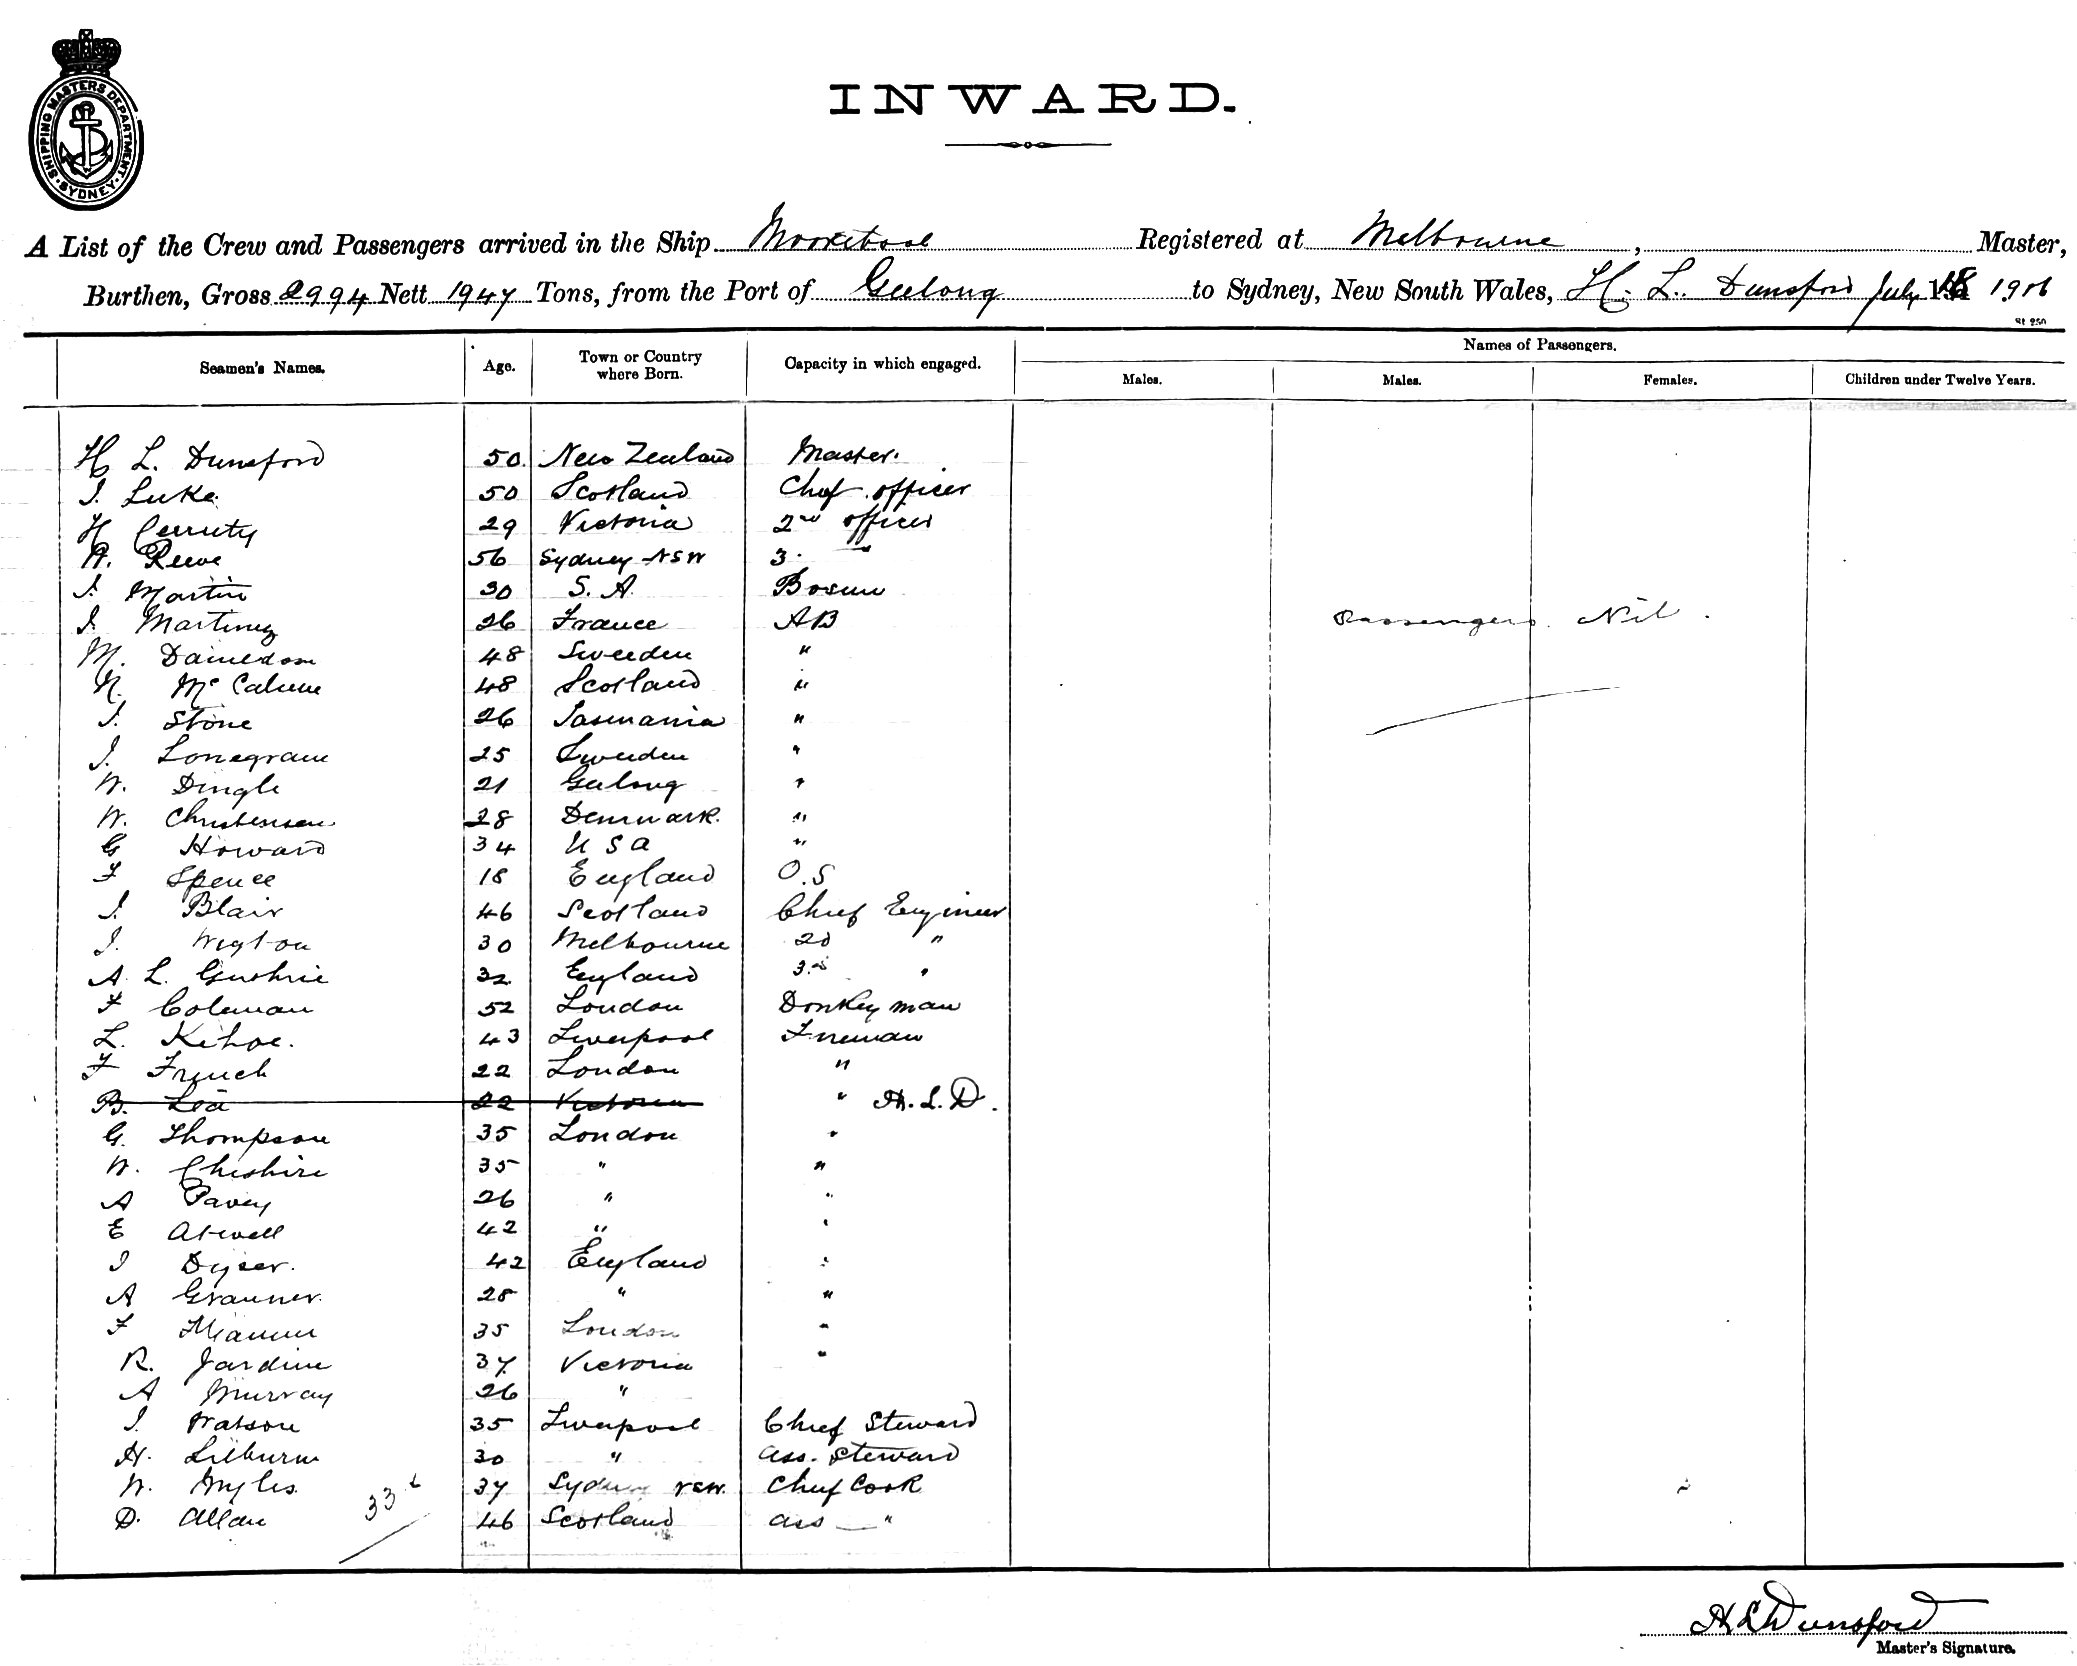 SHIPPING MASTERS DEPARTMENT · SYDNEY ·
INWARD.
A List of the Crew and Passengers arrived in the Ship Moorabool Registered at Melbourne, Master,
Burthen, Gross 2994 Nett 1947 Tons, from the Port of Geelong to Sydney, New South Wales, H. L. Dunsford July 18 1906
Seamen's Names. Age. Town or Country where Born. Capacity in which engaged. Names of Passengers.
Males. Males. Females. Children under Twelve Years.
H L. Dunsford 50 New Zealand Master.
J. Luke 50 Scotland Chief officer
H Cerruty 29 Victoria 2nd officer
A. Reeve 56 Sydney NSW 3. "
J. Martin 30 S. A. Bosun
J. Martinez 26 France AB Passengers. Nil.
M. 48 Sweeden "
N. Mc 48 Scotland "
J. Stone 26 Tasmania "
J. Lonegrane 25 Sweeden "
W. Dingle 21 Geelong "
W. Christensen 28 Denmark. "
G Howard 34 U S A "
F Spence 18 England O.S
J. Blair 46 Scotland Chief Engineer
J. Wigton 30 Melbourne 2d "
A. L. Guthrie 32 England 3rd "
F Coleman 52 London Donkeyman
L. Kehoe. 43 Liverpool Fireman
F French 22 London "
B. Lea 22 Victoria " H. L. D.
G. Thompson 35 London "
W. Cheshire 35 " "
A Pavey 26 " "
E Atwell 42 " "
J Dyser. 42 England "
A Granner. 28 " "
F 35 London "
R. Jardine 37 Victoria "
A Murray 26 "
J. Watson 35 Liverpool Chief Steward
H. Lilburn 30 " Ass. Steward
W. Myles 37 Sydney NSW. Chief Cook
D. Allan 33 46 Scotland Ass — "
H L Dunsford
Master's Signature.